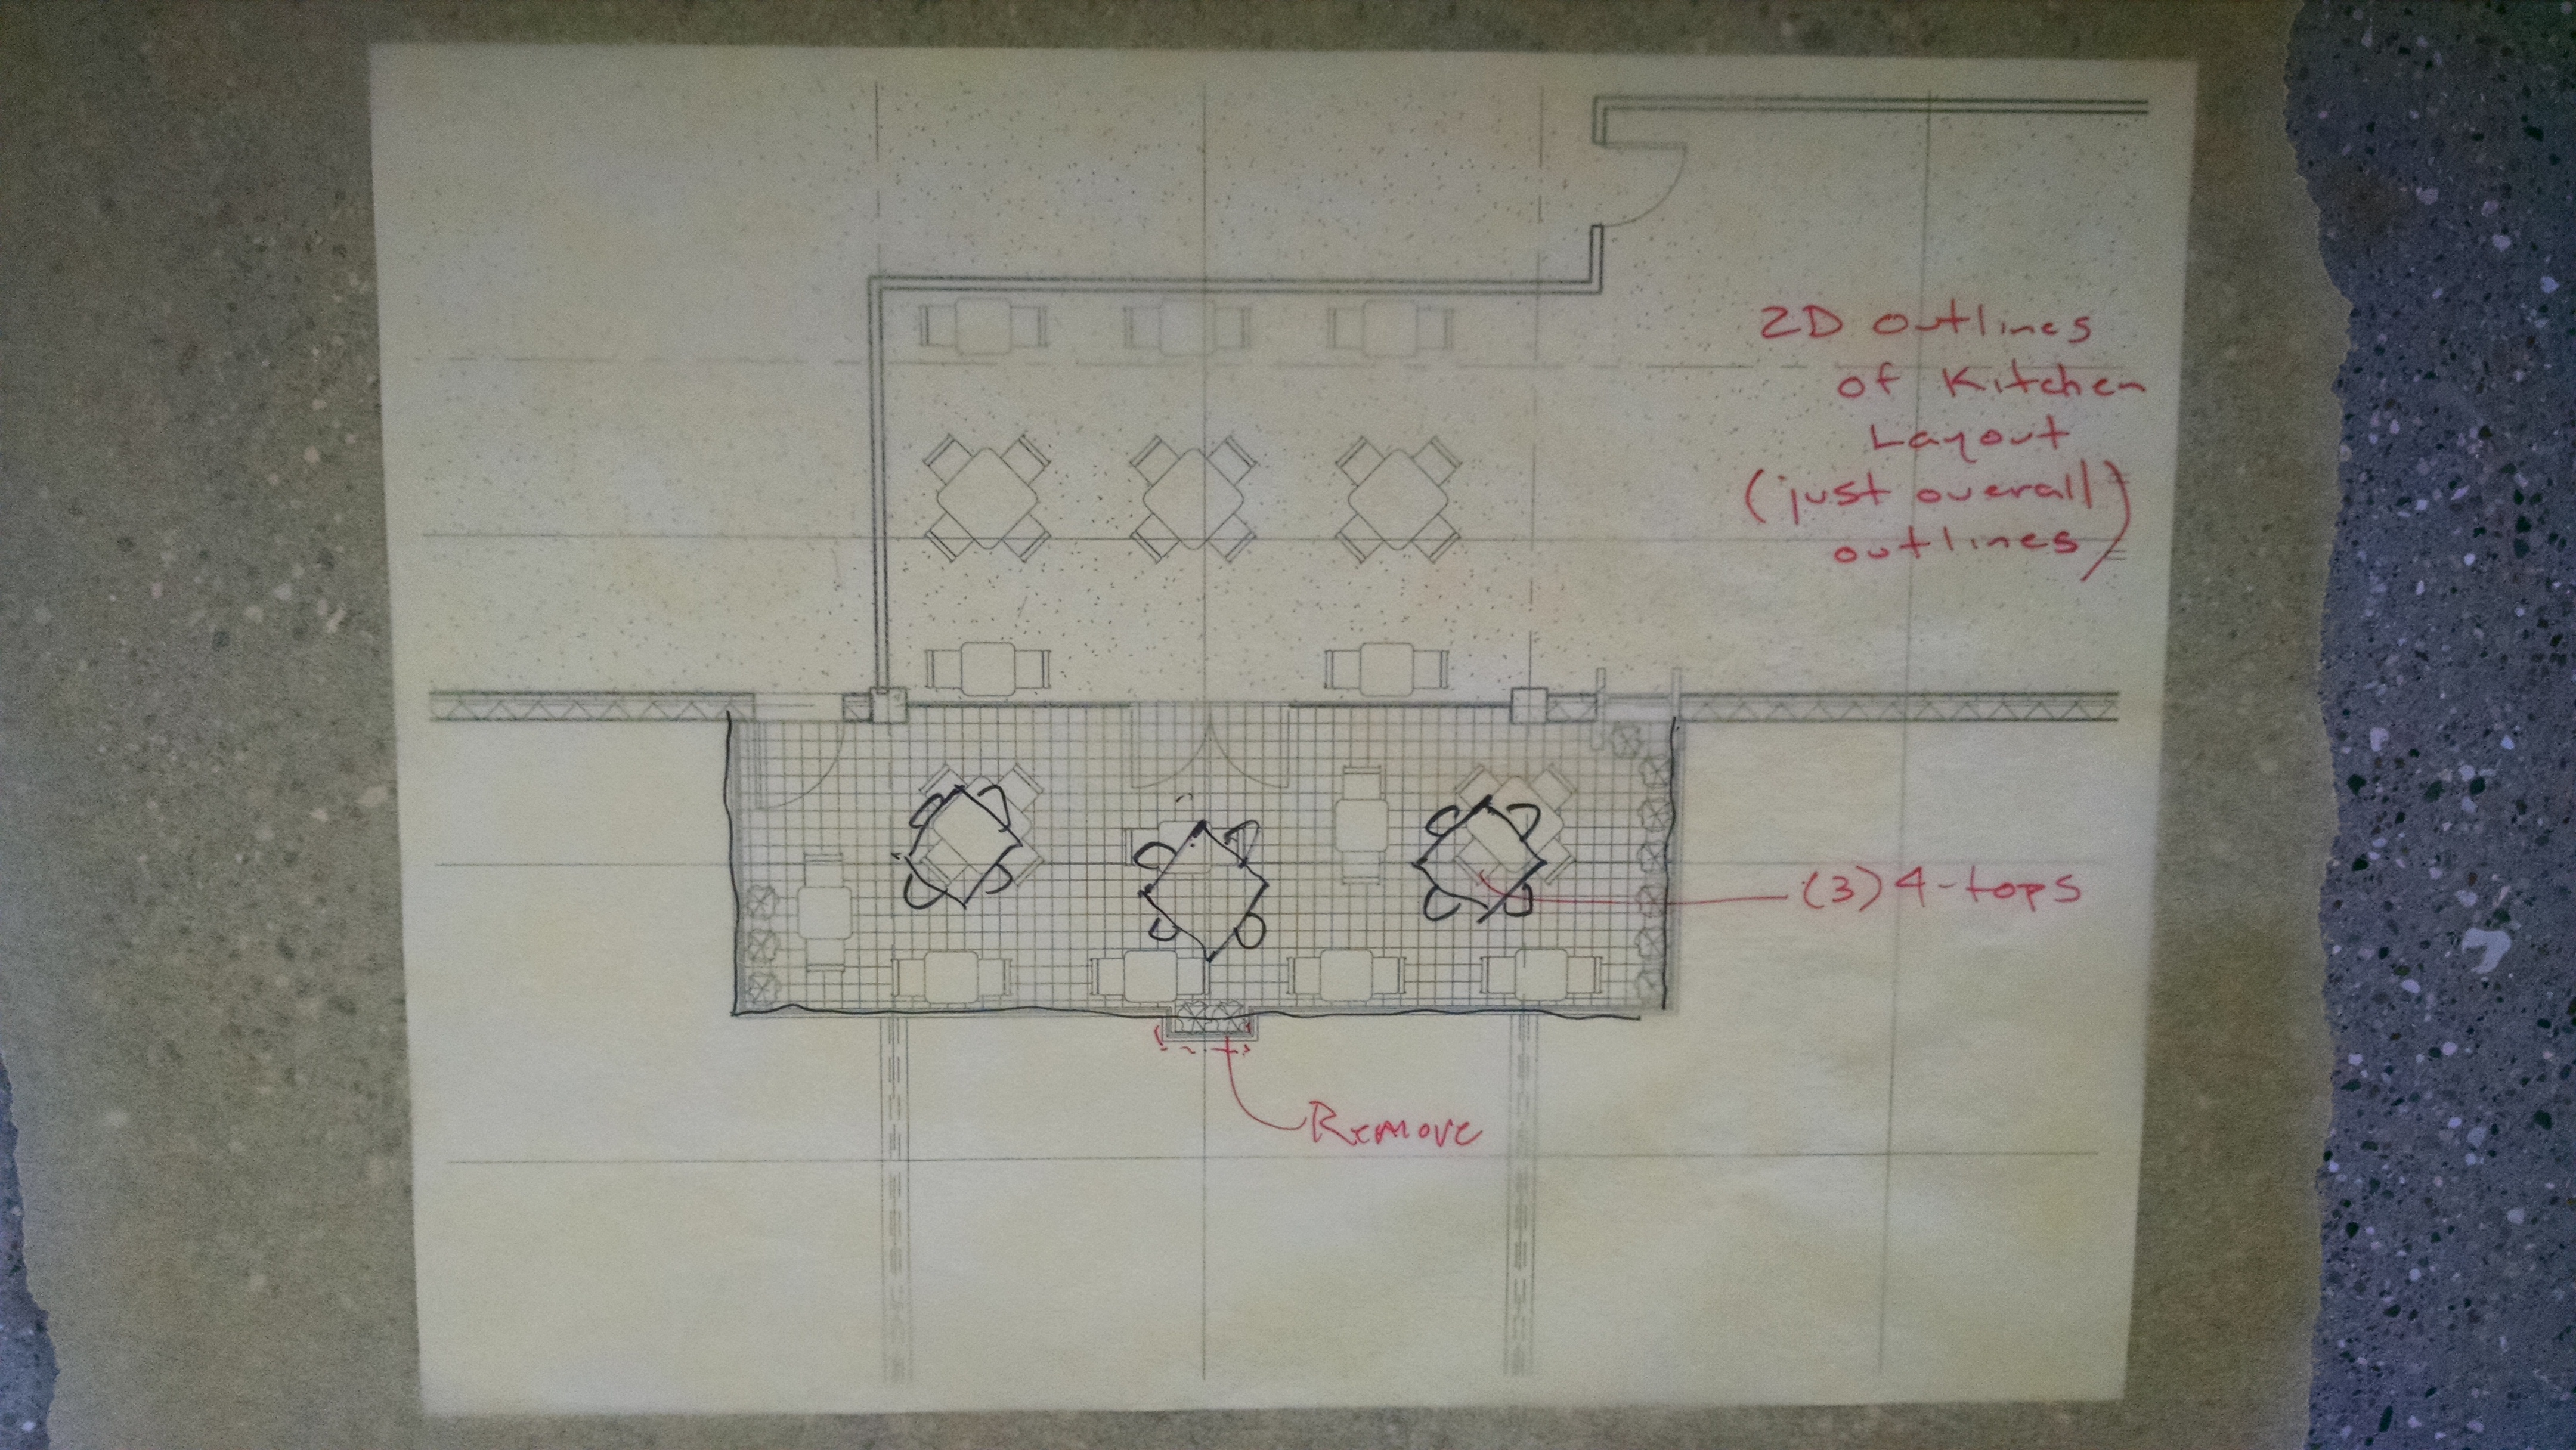 2D outlines
of Kitchen
Layout
(just overall)
outlines
(3) 4-tops
Remove